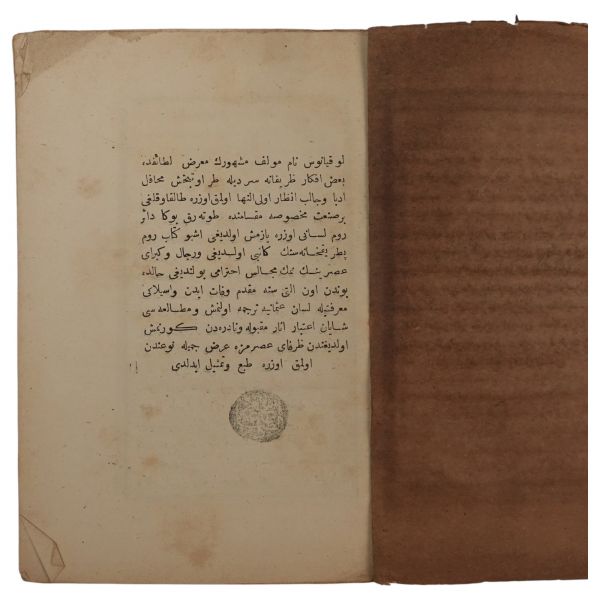 لوقيانوس نام مولف مشهورك معرض لطائفده
بعض افكار ظريفانه سرديله طراوتبخش محافل
ادبا وجالب انظار اولى النها اولمق اوزره طالقاوقلغى
برصنعت مخصوصه مقامنده طوته رق بوكا دائر
روم لسانى اوزره يازمش اولديغى اشبو كتاب روم
پطريقخانه سنك كاتبى اولديغى ورجال وكبراى
عصرينك نمك مجالس احترامى بولنديغى حالده
بوندن اون التى سنه مقدم وفات ايدن واسيلاكى
معرفتيله لسان عثمانيه ترجمه اولنمش ومطالعه سى
شايان اعتبار اثار مقبوله ونادره دن كورنمش
اولديغندن ظرفاى عصرمزه عرض جميله نوعندن
اولمق اوزره طبع وتمثيل ايدلدى